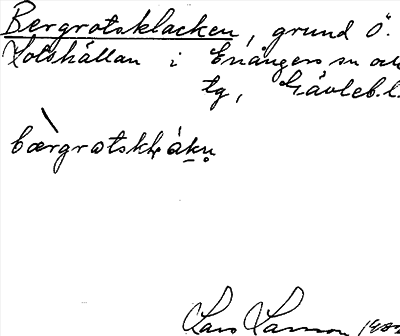 Bergrotsklacken, grund Ö.
Lotshällan i Enångers sn och
tg, Gävleb.l.
bærgrotskḷákn̥
Lars Larsson